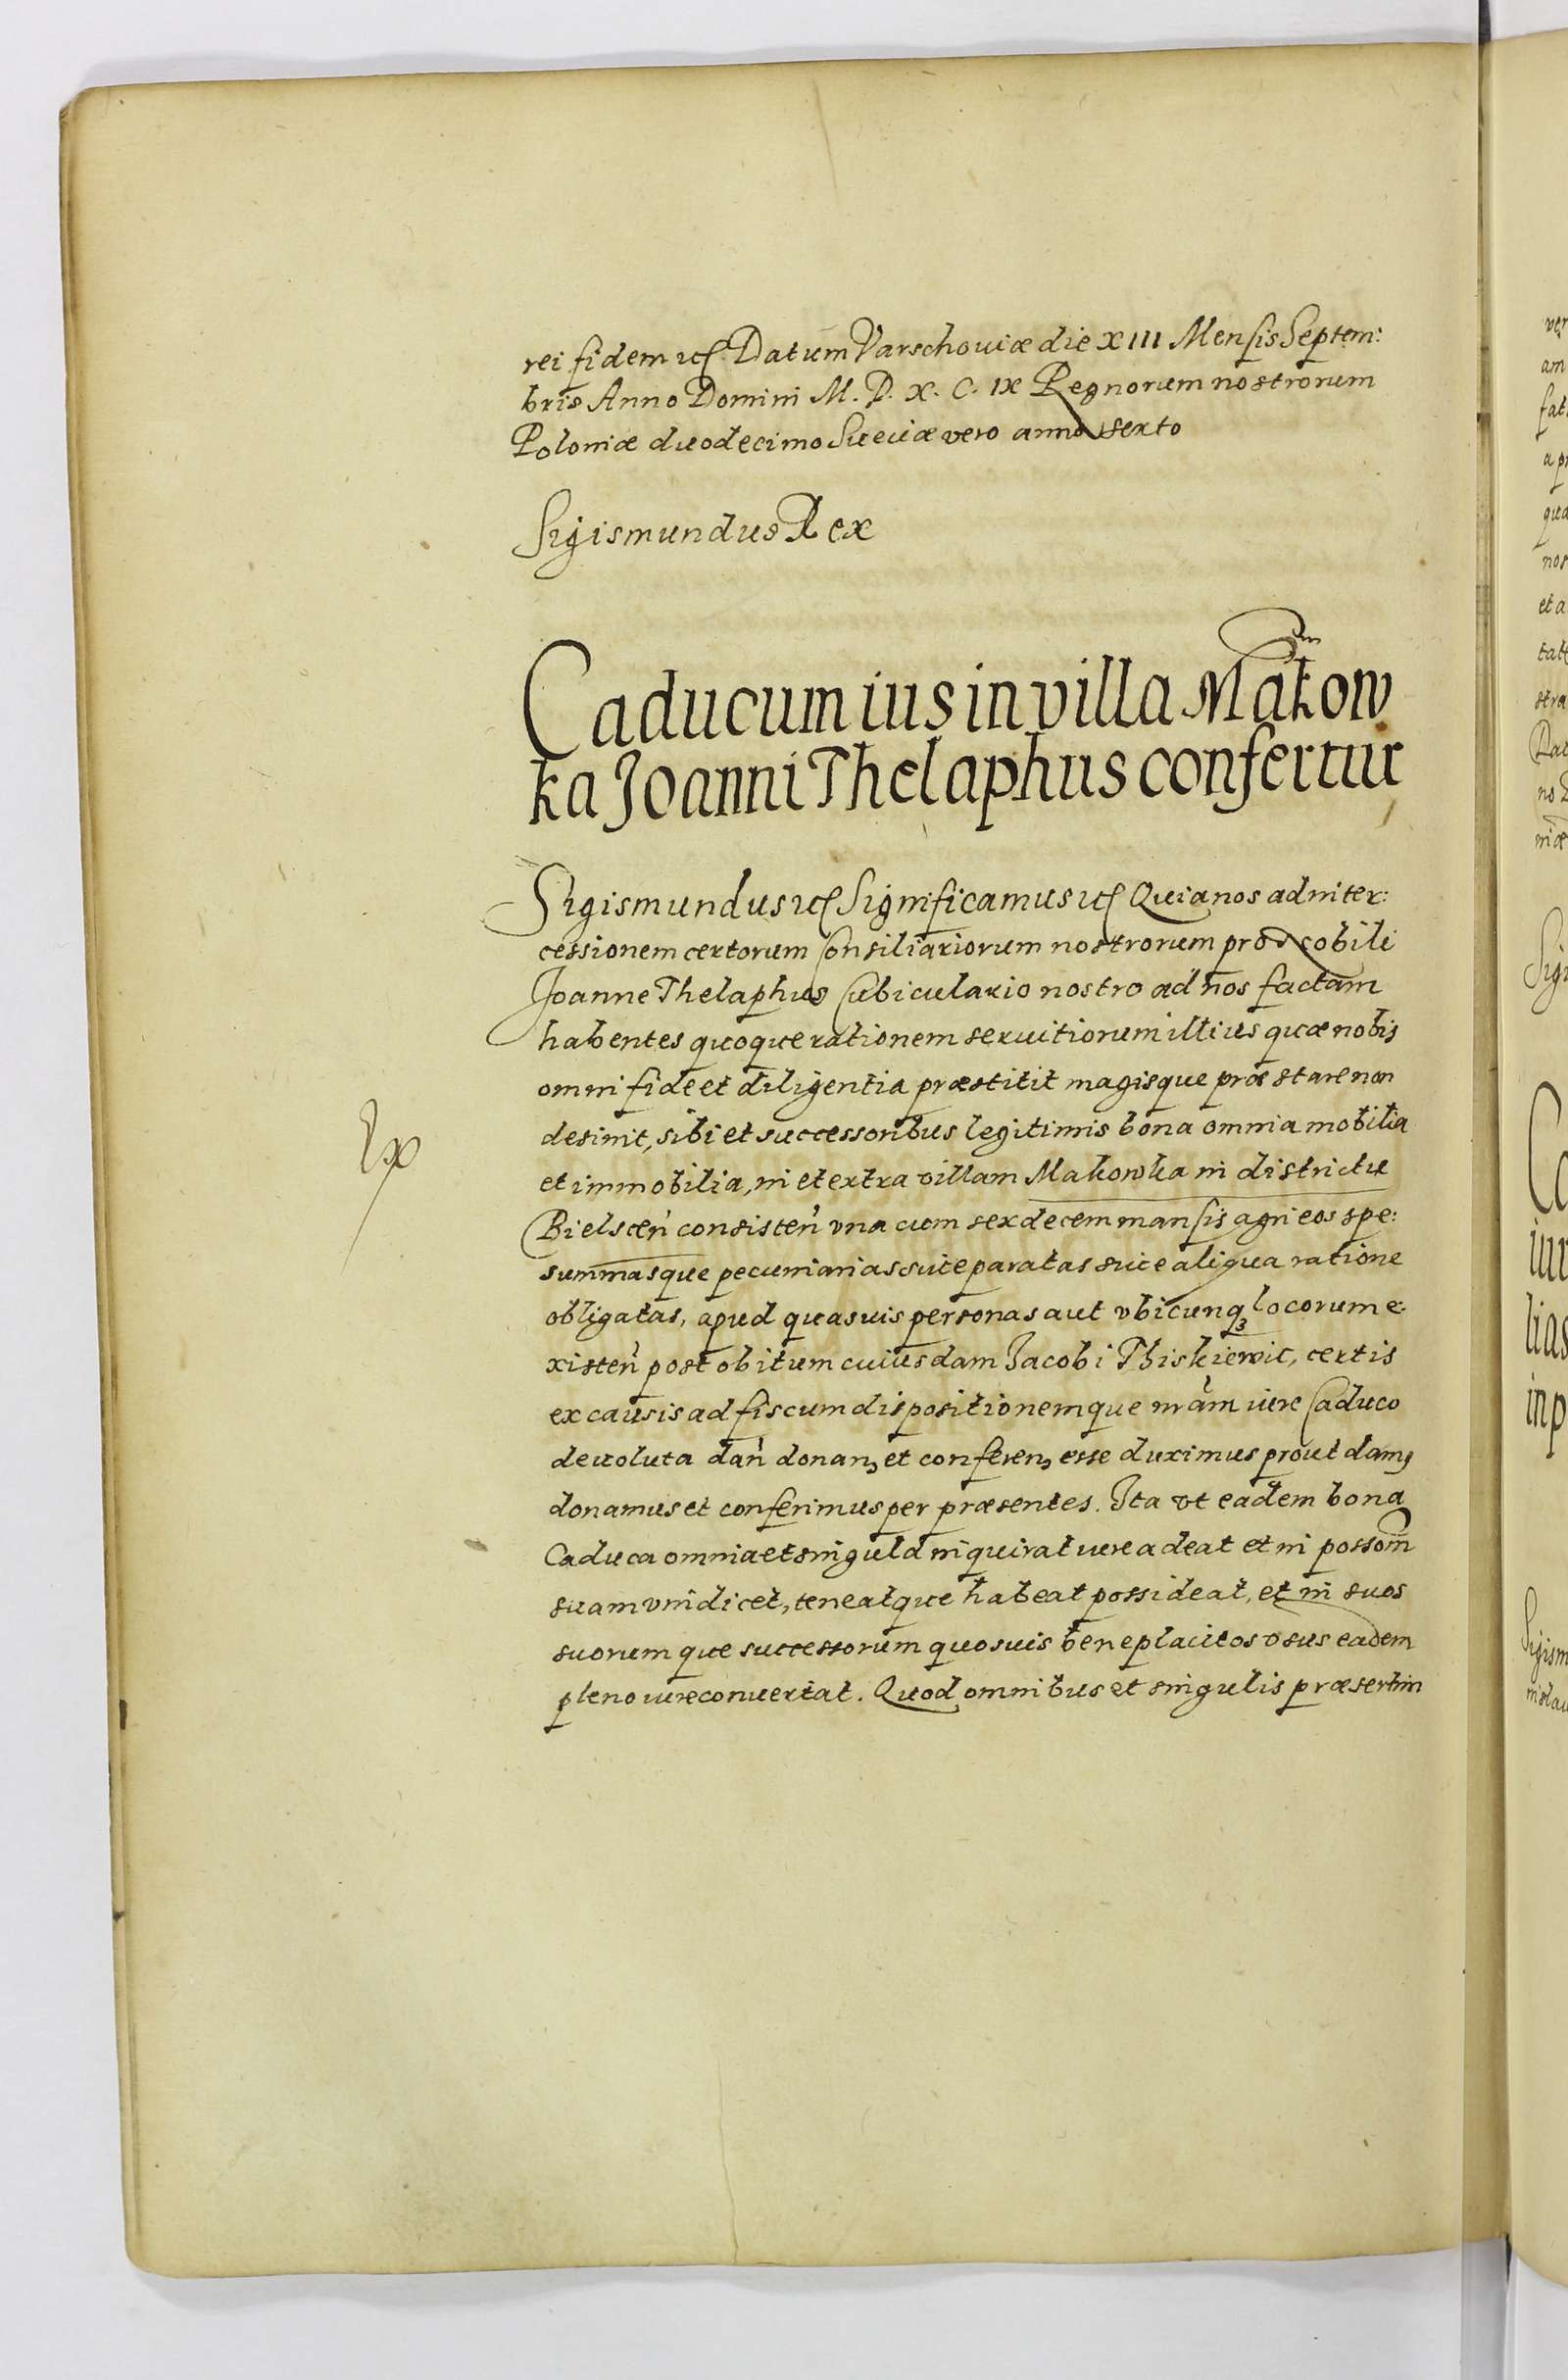 rei fidem etc Datum Varschoviæ die XIII Mensis Septem:
bris Anno Domini M. D. X. C. IX Regnorum nostrorum
Poloniæ duodecimo Sueciæ vero anno sexto
Sigismundus Rex
Caducum ius in villa Makow
ka Joanni Thelaphus confertur
Sigismundus etc Significamus etc Quia nos ad inter:
cessionem certorum Consiliariorum nostrorum pro Nobili
Joanne Thelaphus Cubiculario nostro ad nos factam
habentes quoque rationem seruitiorum illius quæ nobis
omni fide et diligentia præstitit magisque præstare non
desinit, sibi et successoribus legitimis bona omnia mobilia
et immobilia, in et extra villam Makowka in districtu
Ex
Bielscen̄ consisten̄ vna cum sexdecem mansis agri eos spe:
summasque pecuniarias siue paratas siue aliqua ratione
obligatas, apud quasuis personas aut vbicunqꝫ locorum e:
xisten̄ post obitum cuiusdam Jacobi Thiskiewic, certis
ex causis ad fiscum dispositionemque nr̄am iure Caduco
deuoluta dan̄ donanꝫ et conferenꝫ esse duximus prout damꝰ
donamus et conferimus per præsentes. Ita vt eadem bona
Caduca omnia et singula inquirat iure adeat et in possom̄
suam vindicet, teneatque habeat possideat, et in suos
suorumque successorum quosuis beneplacitos vsus eadem
pleno iure conuertat. Quod omnibus et singulis præsertim